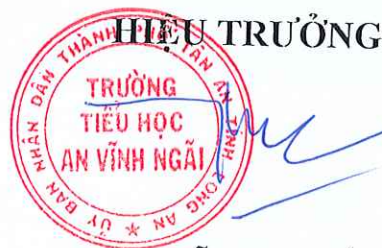 HIỆU TRƯỞNG
ỦY BAN NHÂN DÂN THÀNH PHỐ TÂN AN TỈNH LONG AN
TRƯỜNG
TIỂU HỌC
AN VĨNH NGÃI